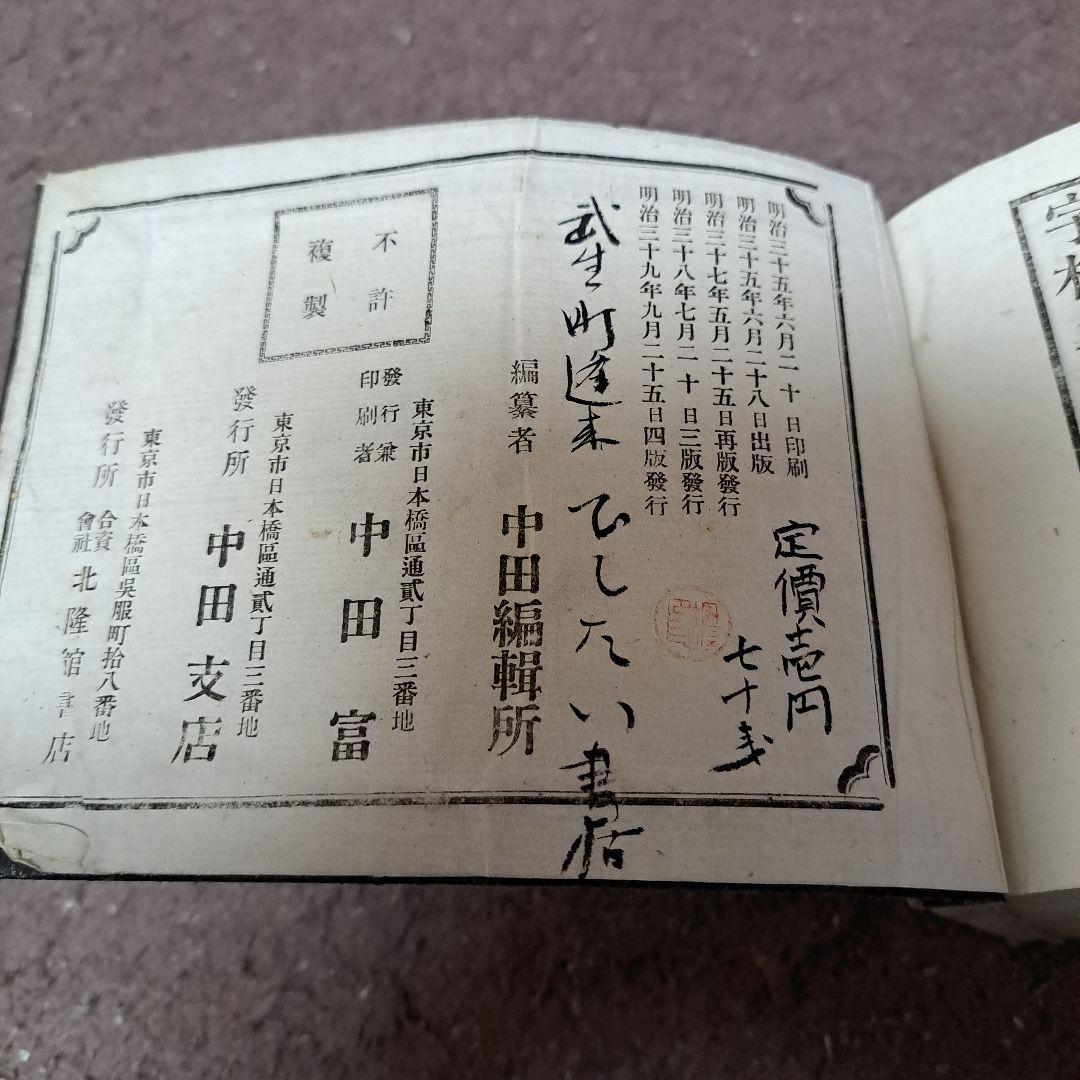 明治三十五年六月二十日印刷
明治三十五年六月二十八日出版
明治三十七年五月二十五日再版發行
明治三十八年七月二十日三版發行
明治三十九年九月二十五日四版發行
定價壱円
七十戋
武生町蓬莱
ひしたい書店
編纂者 中田編輯所
東京市日本橋區通貳丁目三番地
發行兼印刷者 中田富
東京市日本橋區通貳丁目三番地
發行所 中田支店
東京市日本橋區吳服町拾八番地
發行所 合資會社 北隆館書店
不許
複製